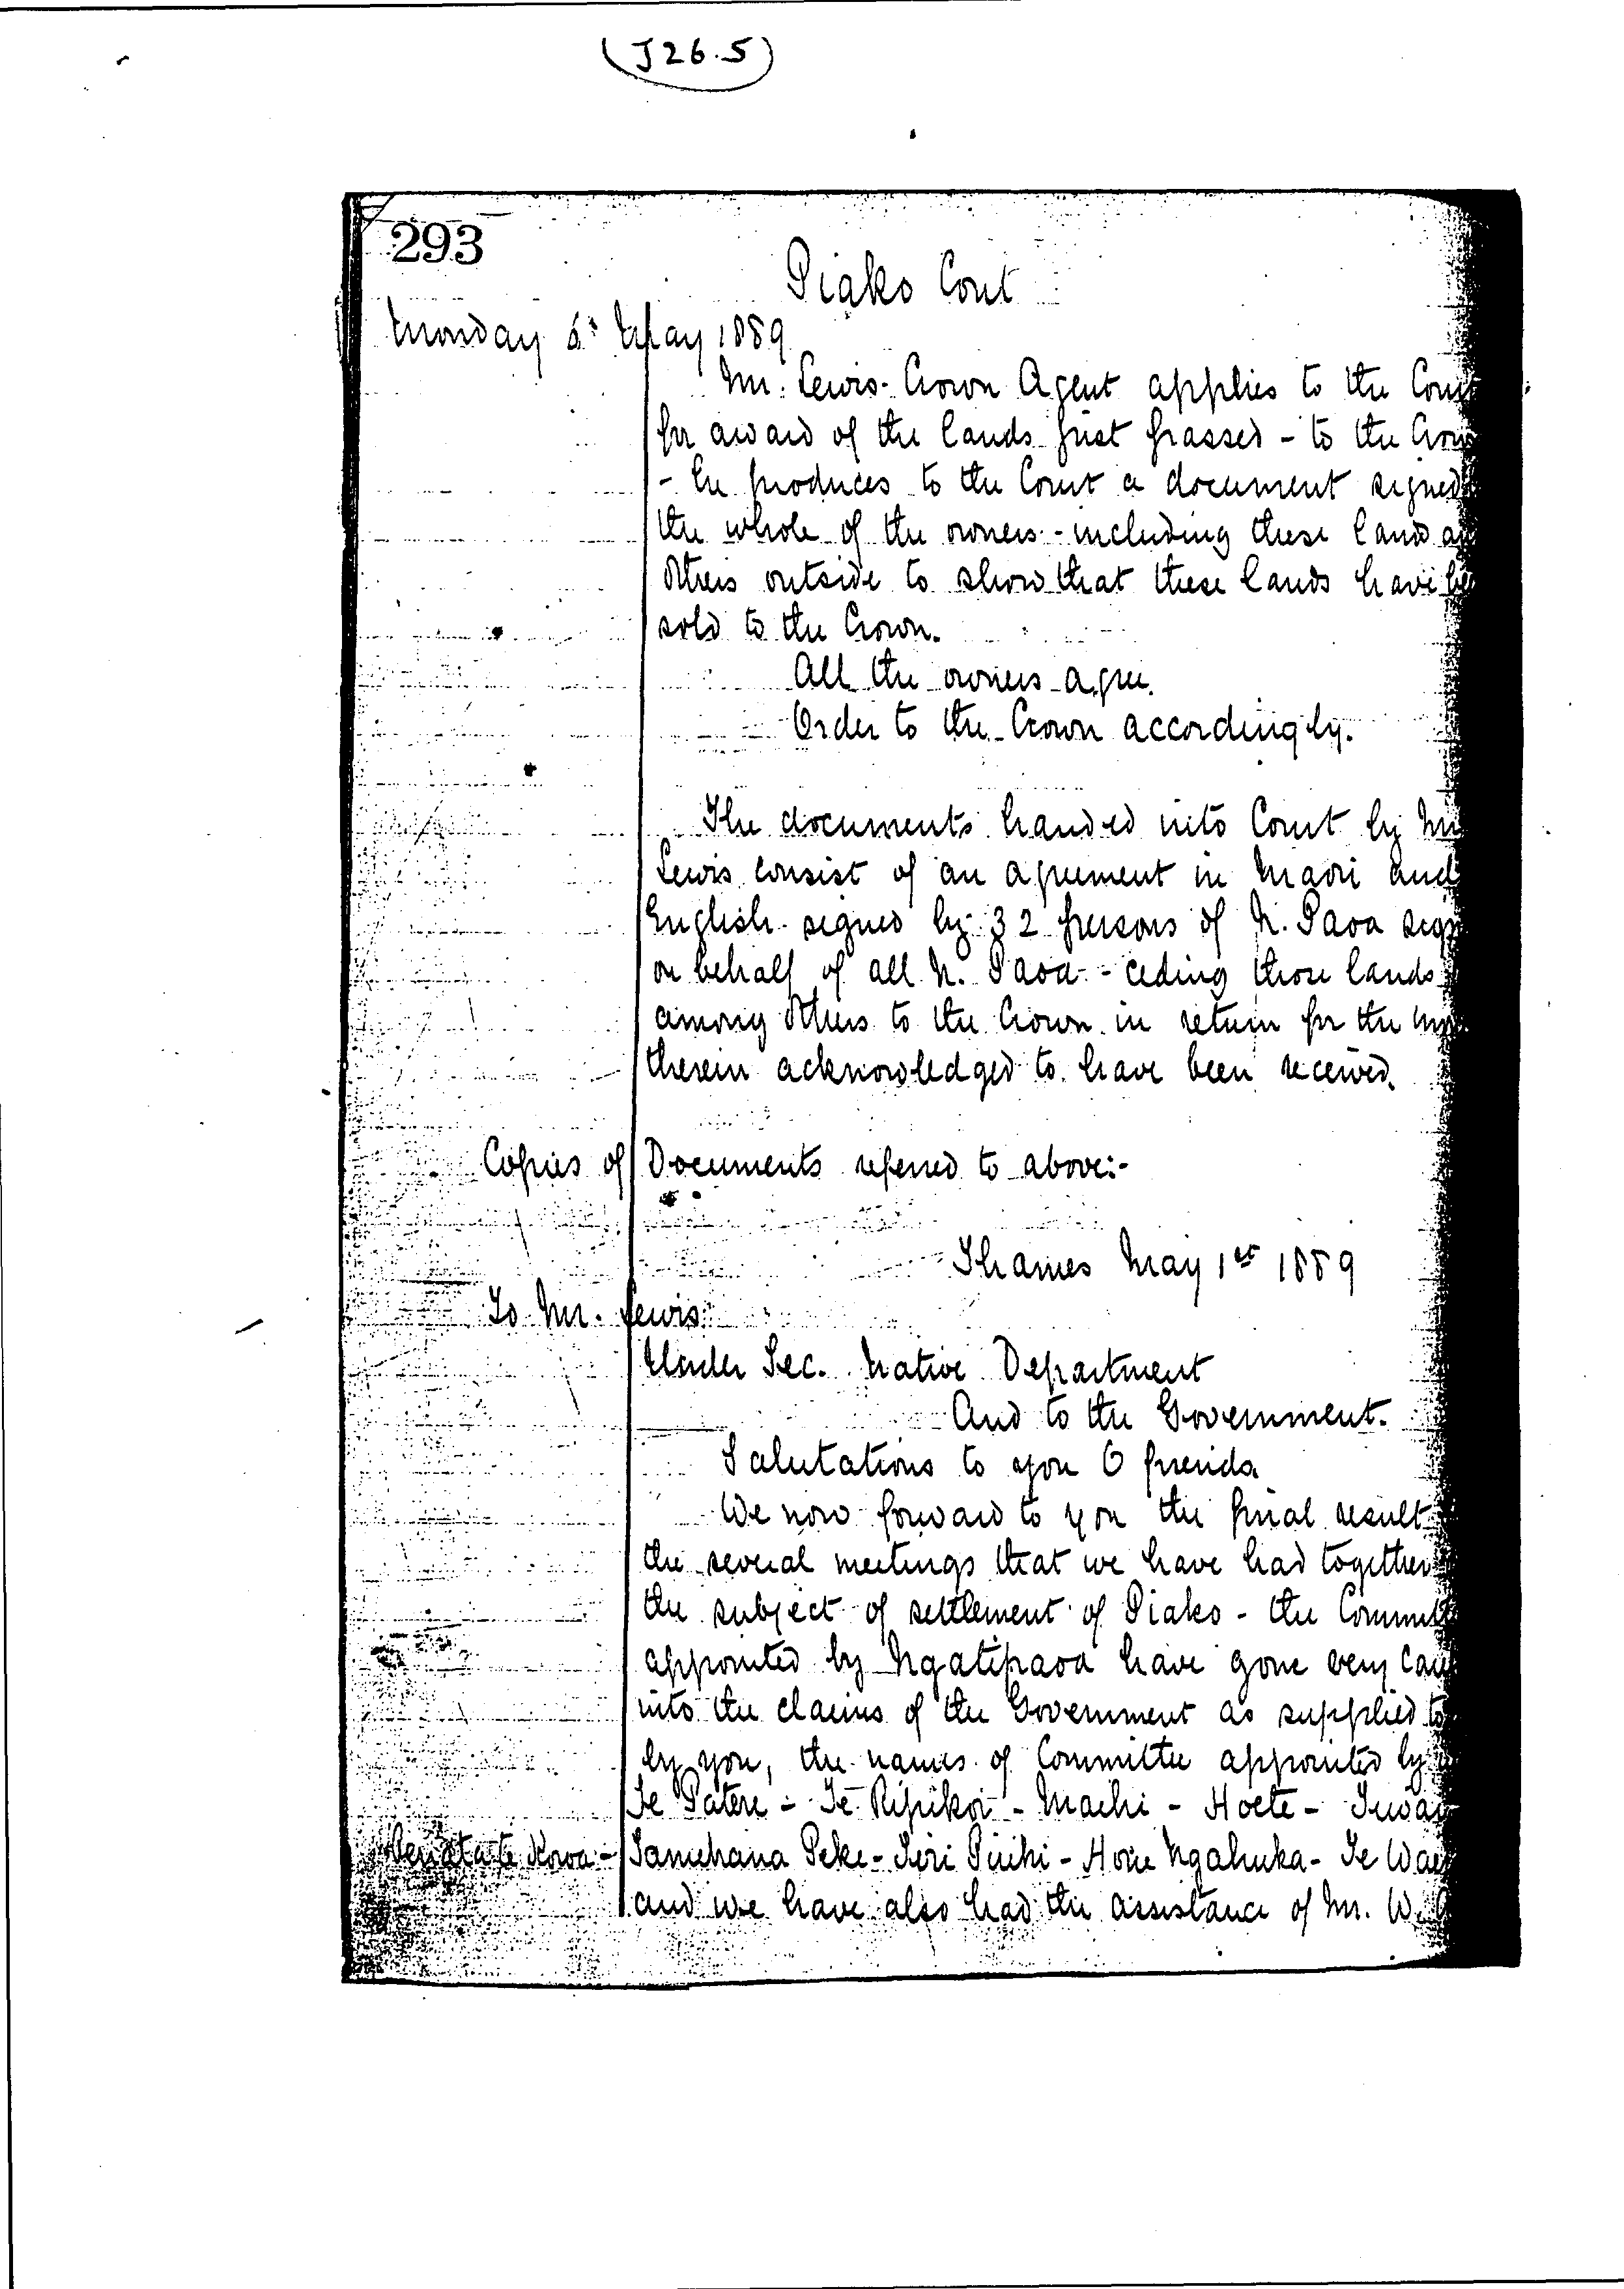 (J26.5)
293
Piako Cont
Monday 6th May 1889
Mr. Lewis - Crown Agent applies to the
for award of the lands just passed - to the
- he produces to the Court a document signed
the whole of the owners - including these lands
others outside to show that these lands have
sold to the Crown.
All the owners agree.
Order to the Crown accordingly.
The documents handed into Court by Mr
Lewis consist of an agreement in Maori and
English signed by 32 persons of N. Paoa
on behalf of all N. Paoa - ceding those lands
among others to the Crown in return for the
therein acknowledged to have been received.
Copies of Documents referred to above:-
Thames May 1st 1889
To Mr. Lewis
Under Sec. Native Department
And to the Government.
Salutations to you O friends
We now forward to you the final result
the several meetings that we have had together
the subject of settlement of Piako - the
appointed by Ngatipaoa have gone very
into the claims of the Government as supplied to
by you, the names of Committee appointed by
Te Patere - Te Ripikoi - Maihi - Hoete -
- Tamehana Peke - Keri Puihi - Hone Ngahuka - Te
and we have also had the assistance of Mr. W.